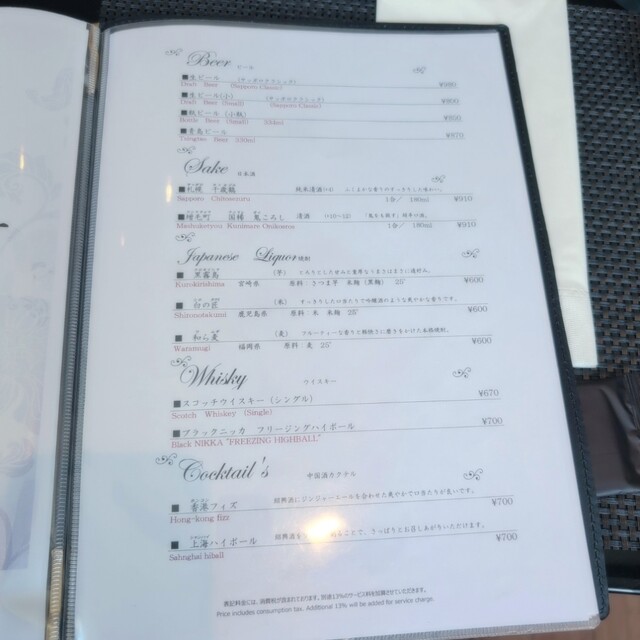 Beer ビール
■生ビール (サッポロクラシック)
Draft Beer (Sapporo Classic)
■生ビール(小) (サッポロクラシック)
Draft Beer (Small) (Sapporo Classic) ¥800
■瓶ビール (小瓶)
Bottle Beer (Small) 334ml ¥800
■青島ビール
Tsingtao Beer 330ml ¥870
Sake 日本酒
■札幌 千歳鶴 純米清酒
Sapporo Chitosetsuru 1合/ 180ml ¥910
■増毛町 国稀 鬼ころし 清酒
Mashukecyou Kunimare Onikorosi 1合/ 180ml ¥910
Japanese Liquor 焼酎
■黒霧島 (芋)
Kurokirishima 宮崎県 原料 さつま芋 米麹(黒麹) 25° ¥600
(米)
Shironotakumi 鹿児島県 原料 米 米麹 25° ¥600
■和ら麦 (麦)
Waramugi 福岡県 原料 麦 25° ¥600
Whisky ウイスキー
■スコッチウイスキー(シングル) ¥670
Scotch Whiskey (Single)
■ブラックニッカ フリージングハイボール ¥700
Black NIKKA "FREEZING HIGHBALL"
Cocktail's 中国酒カクテル
■香港フィズ 紹興酒にジンジャーエールを合わせた爽やかで口当たりが良いです。 ¥700
Hong-kong fizz
■上海ハイボール 紹興酒を ことで、さっぱりとお召しあがりいただけます。 ¥700
Sahnghai hiball
表記料金には、消費税が含まれております。別途13%のサービス料を加算させていただきます。
Price includes consumption tax. Additional 13% will be added for service charge.